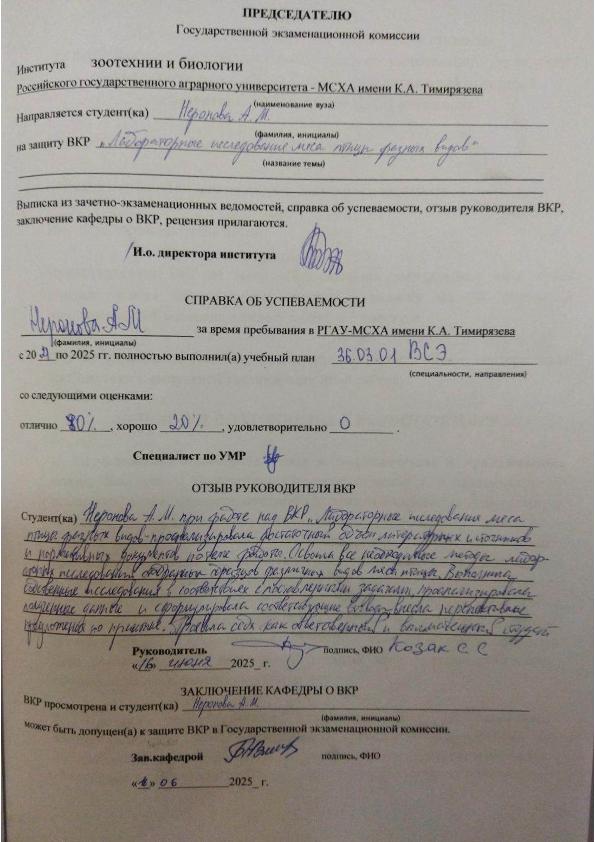 ПРЕДСЕДАТЕЛЮ
Государственной экзаменационной комиссии
Института зоотехнии и биологии
Российского государственного аграрного университета - МСХА имени К.А. Тимирязева
(наименование вуза)
Направляется студент(ка) Неронова А.М.
(фамилия, инициалы)
на защиту ВКР „Лабораторные исследование мяса птицы разных видов“
(название темы)
Выписка из зачетно-экзаменационных ведомостей, справка об успеваемости, отзыв руководителя ВКР,
заключение кафедры о ВКР, рецензия прилагаются.
И.о. директора института
СПРАВКА ОБ УСПЕВАЕМОСТИ
Неронова А.М за время пребывания в РГАУ-МСХА имени К.А. Тимирязева
(фамилия, инициалы)
с 20 по 2025 гг. полностью выполнил(а) учебный план 36.03.01 ВСЭ
(специальности, направления)
со следующими оценками:
отлично 80%, хорошо 20%, удовлетворительно 0.
Специалист по УМР
ОТЗЫВ РУКОВОДИТЕЛЯ ВКР
Студент(ка) Неронова А.М. при работе над ВКР „Лабораторные исследования мяса
птицы разных видов- проанализировала достаточный объем литературных источников
и нормативных документов по теме работы. Освоила все необходимые методы лабор-
исследований образцов различных видов мяса птицы. Выполнила
собственные исследования в соответствии с поставленными задачами, проанализировала
полученные данные и сформулировала соответствующие выводы, внесла
предложения по. Проявила себя как ответственный и студент
Руководитель подпись, ФИО Козак С С
«16» июня 2025_ г.
ЗАКЛЮЧЕНИЕ КАФЕДРЫ О ВКР
ВКР просмотрена и студент(ка) Неронова А.М.
(фамилия, инициалы)
может быть допущен(а) к защите ВКР в Государственной экзаменационной комиссии.
Зав.кафедрой подпись, ФИО
06 2025_ г.